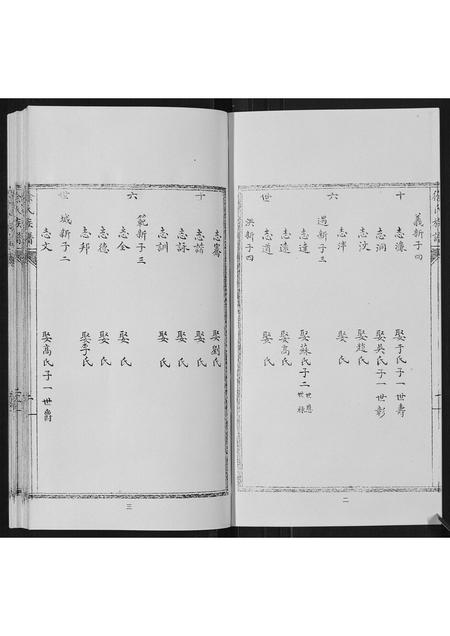 氏族譜
十六世
義新子四
志濂 娶于氏子一世壽
志洞 娶吳氏子一世彰
志汶 娶趙氏
志泮 娶 氏
遇新子三
志達 娶蘇氏子二 世恩 世祿
志遠 娶高氏
志道 娶 氏
洪新子四
二
十六世
志騫 娶劉氏
志 娶 氏
志詠 娶 氏
志訓 娶 氏
範新子三
志全 娶 氏
志德 娶 氏
志邦 娶李氏
城新子二
志文 娶高氏子一世爵
氏族譜
三